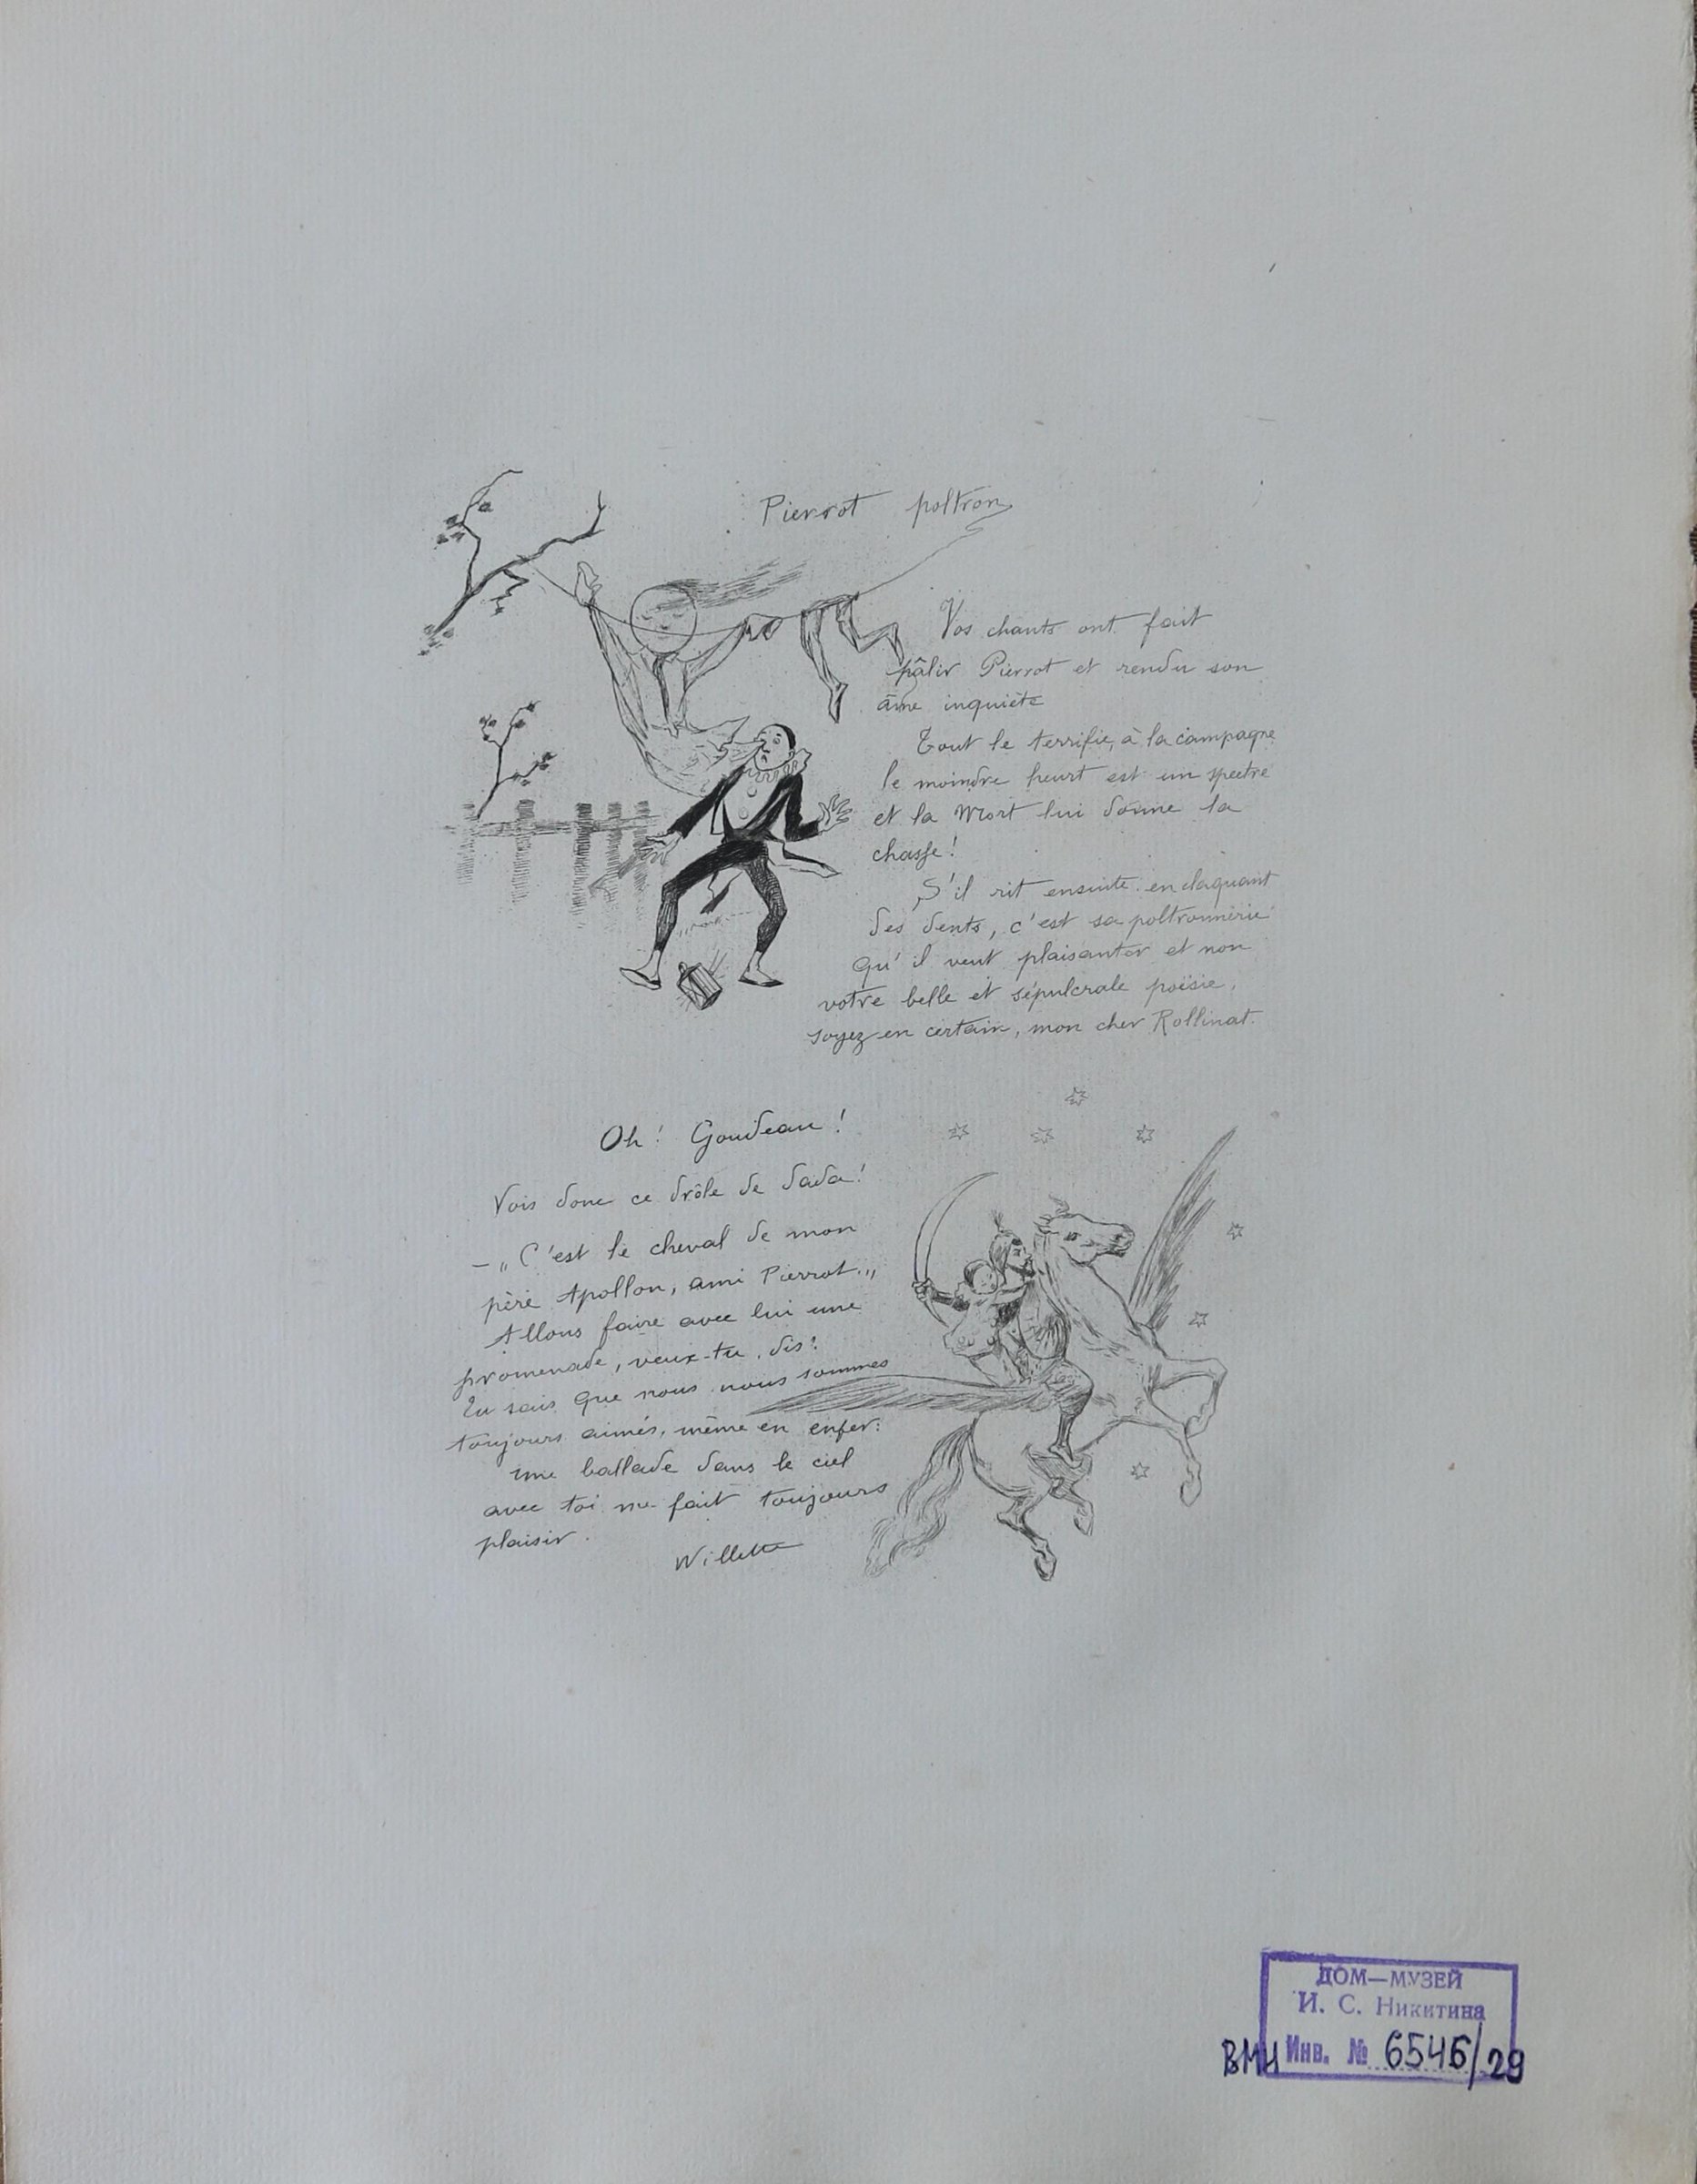 Pierrot poltron
Vos chants ont fait
pâlir Pierrot et rendu son
âme inquiète
Tout le terrifie, à la campagne
le moindre heurt est un spectre
et la Mort lui donne la
chasse !
S'il rit ensuite en claquant
des dents, c'est sa poltronnerie
qu'il veut plaisanter et non
votre belle et sépulcrale poësie,
soyez en certain, mon cher Rollinat.
Oh ! Goudeau !
Vois donc ce drôle de dada !
— „C'est le cheval de mon
père Apollon, ami Pierrot.„
Allons faire avec lui une
promenade, veux-tu, dis ?
Tu sais que nous nous sommes
toujours aimés, même en enfer :
une ballade dans le ciel
avec toi me fait toujours
plaisir.
Willette
ДОМ—МУЗЕЙ
И. С. Никитина
ВМН Инв. № 6546/29